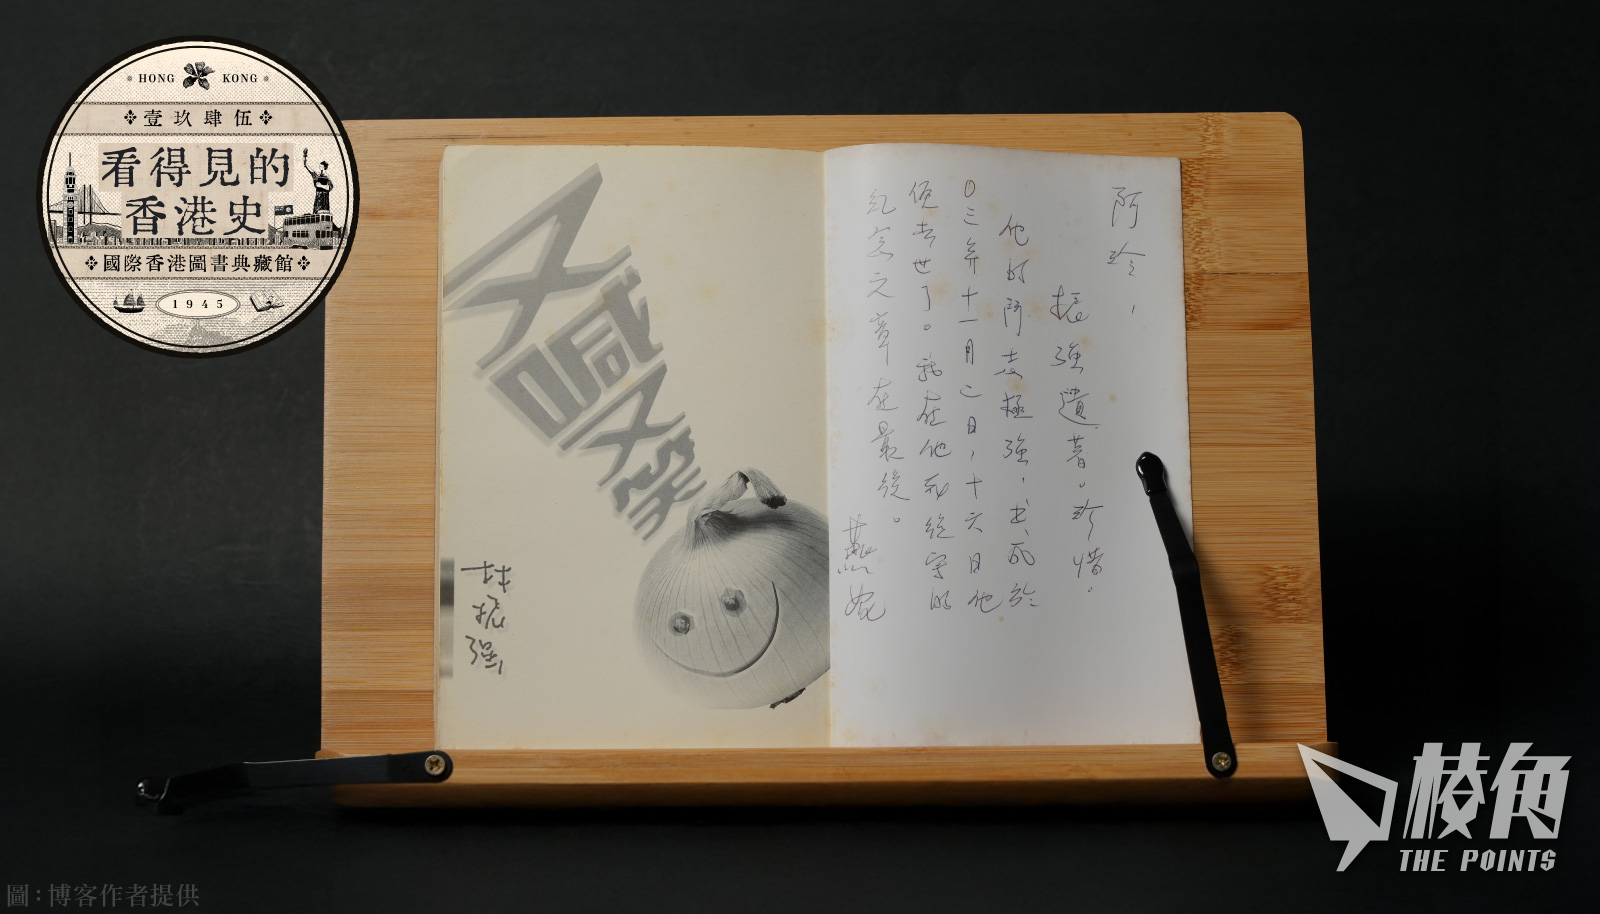 HONG KONG
壹玖肆伍
看得見的
香港史
國際香港圖書典藏館
1945
又喊又
杜振強
阿珍，
振強遺著。珍惜.
他的鬥志極強，死於
0三年十一月二日，十六日他
便去世了。我在他死後寫的
紀念文章在最後。
燕妮
稜角
THE POINTS
圖：博客作者提供